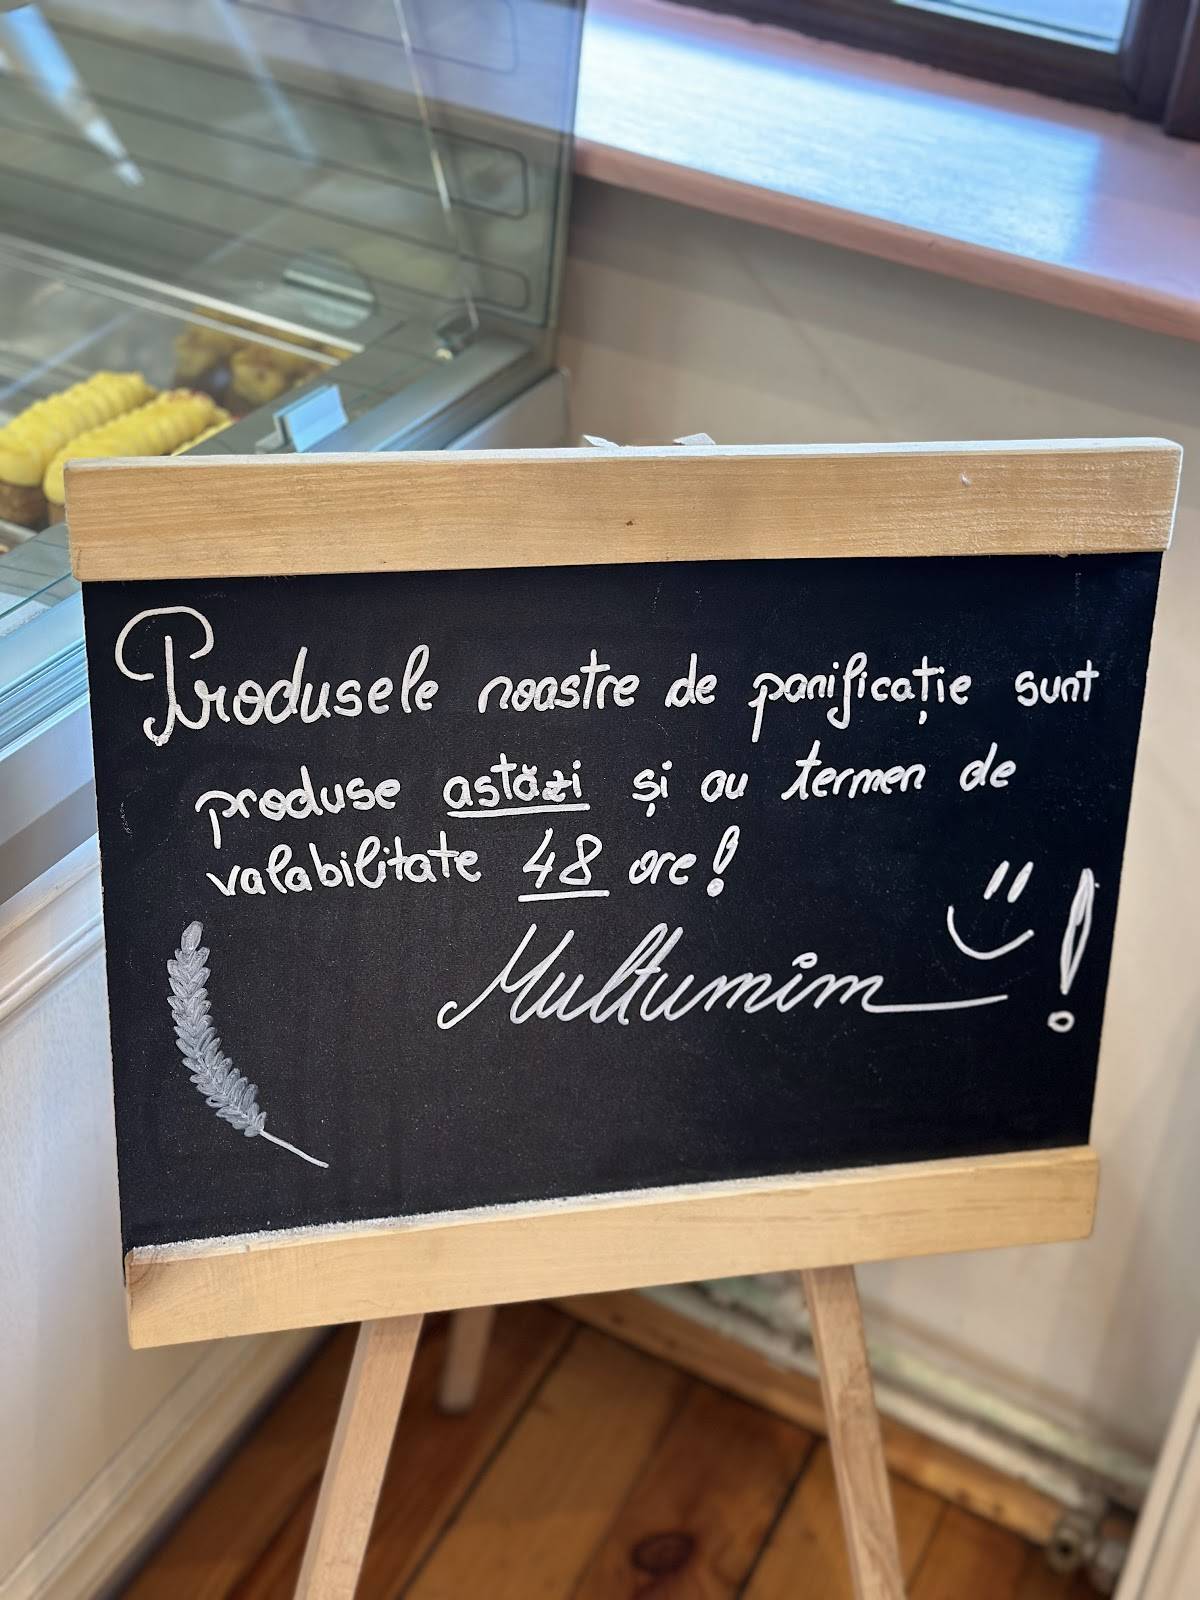 Produsele noastre de panificație sunt
produse astăzi și au termen de
valabilitate 48 ore!
Mulțumim!